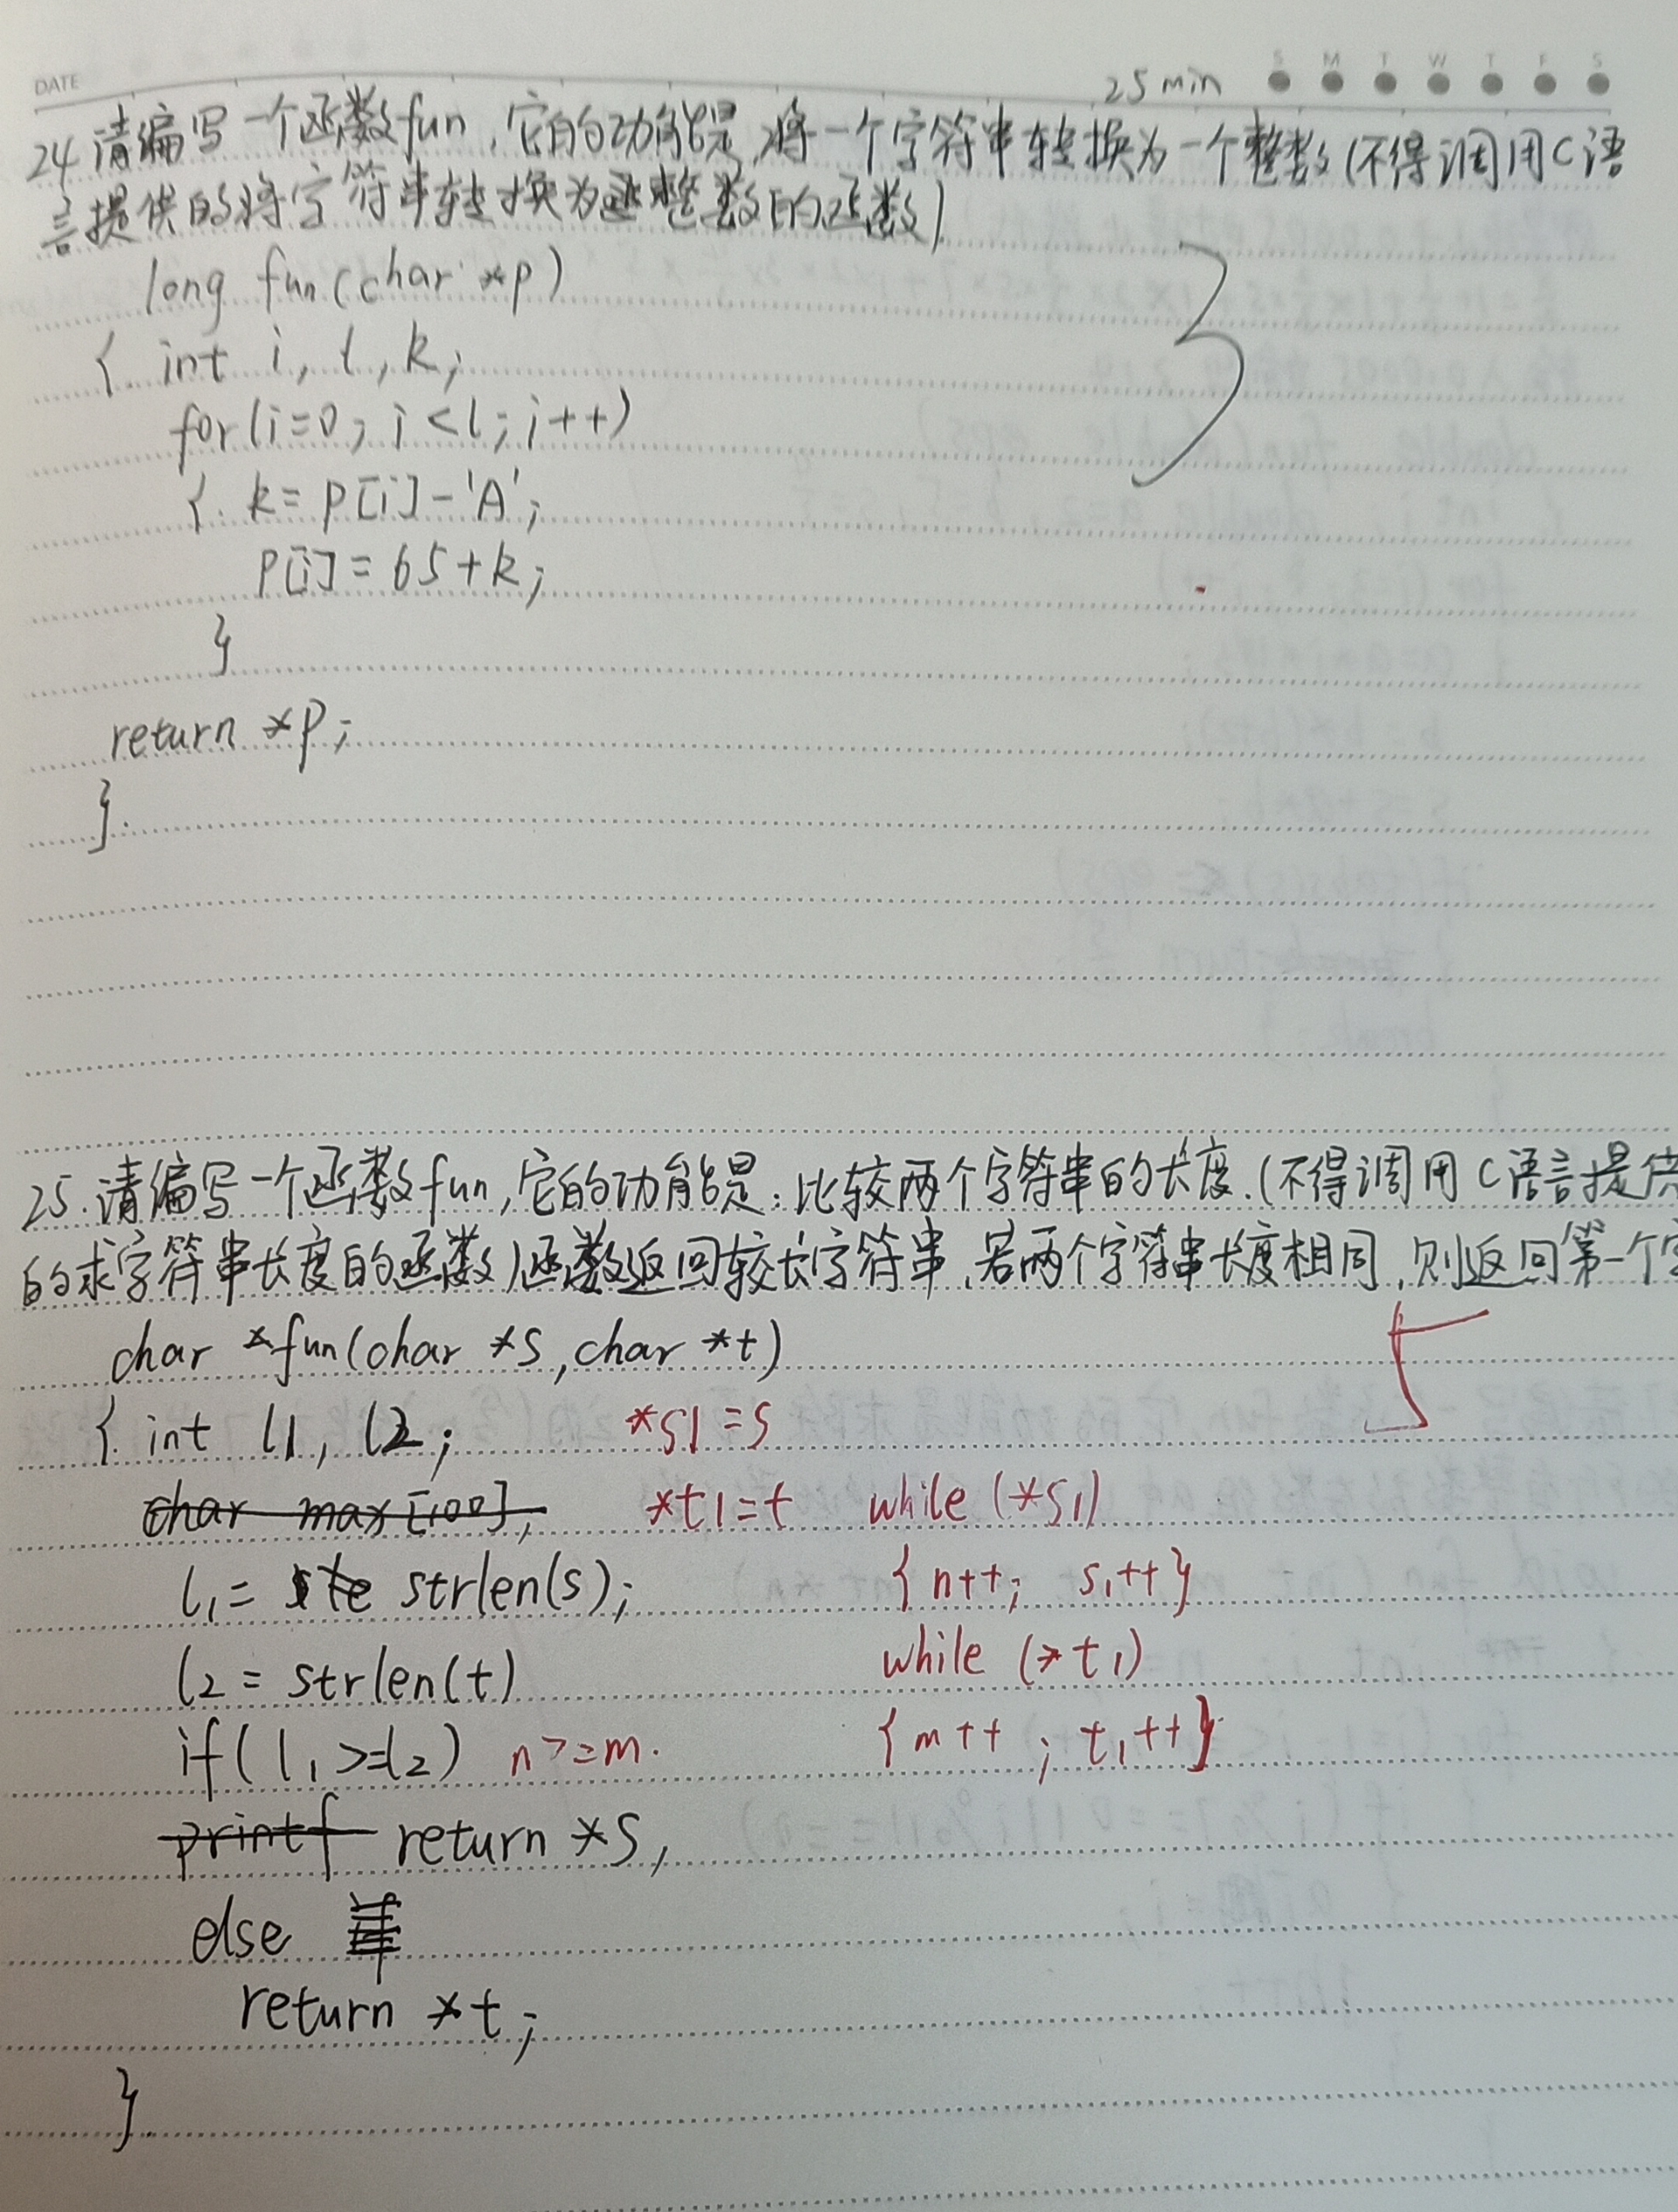 DATE
25 min
S M T W T F S
24 请编写一个函数fun,它的功能是,将一个字符串转换为一个整数(不得调用C语
言提供的将字符串转换为整数的函数)
long fun(char *p)
{ int i, l, k;
for(i=0; i<l; i++)
{ k=p[i]-'A';
p[i]=65+k;
}
return *p;
}.
25.请编写一个函数fun,它的功能是:比较两个字符串的长度.(不得调用C语言提供
的求字符串长度的函数)函数返回较长字符串,若两个字符串长度相同,则返回第一个字
char *fun(char *s,char *t)
{ int l1, l2;
*s1=s
char max[100];
*t1=t while (*s1)
l1= strlen(s);
{ n++; s1++}
l2 = strlen(t)
while (*t1)
if(l1>=l2) n>=m.
{ m++; t1++}
printf return *s,
else
return *t;
}.